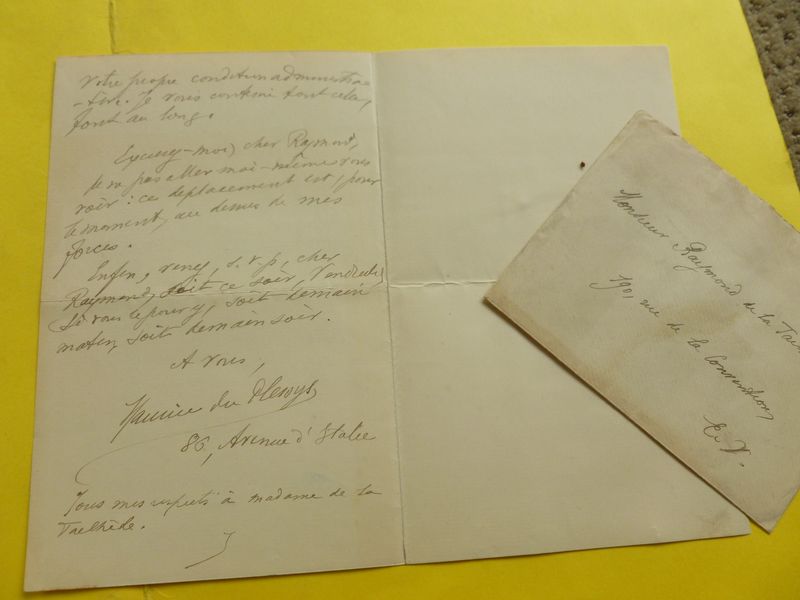 votre propre condition administra
-tive. Je vous conterai tout cela,
tout au long.
Excusez-moi, cher Raymond,
de ne pas aller moi-même vous
voir : ce déplacement est, pour
le moment, au dessus de mes
forces.
Enfin, venez, s. v. p., cher
Raymond, soit ce soir, Vendredi,
si vous le pouvez, soit demain
matin, soit demain soir.
A vous,
Maurice du Plessys
86, Avenue d'Italie
Tous mes respects à madame de la
Tailhède.
Monsieur Raymond de la Tail
190, rue de la Convention,
E. V.